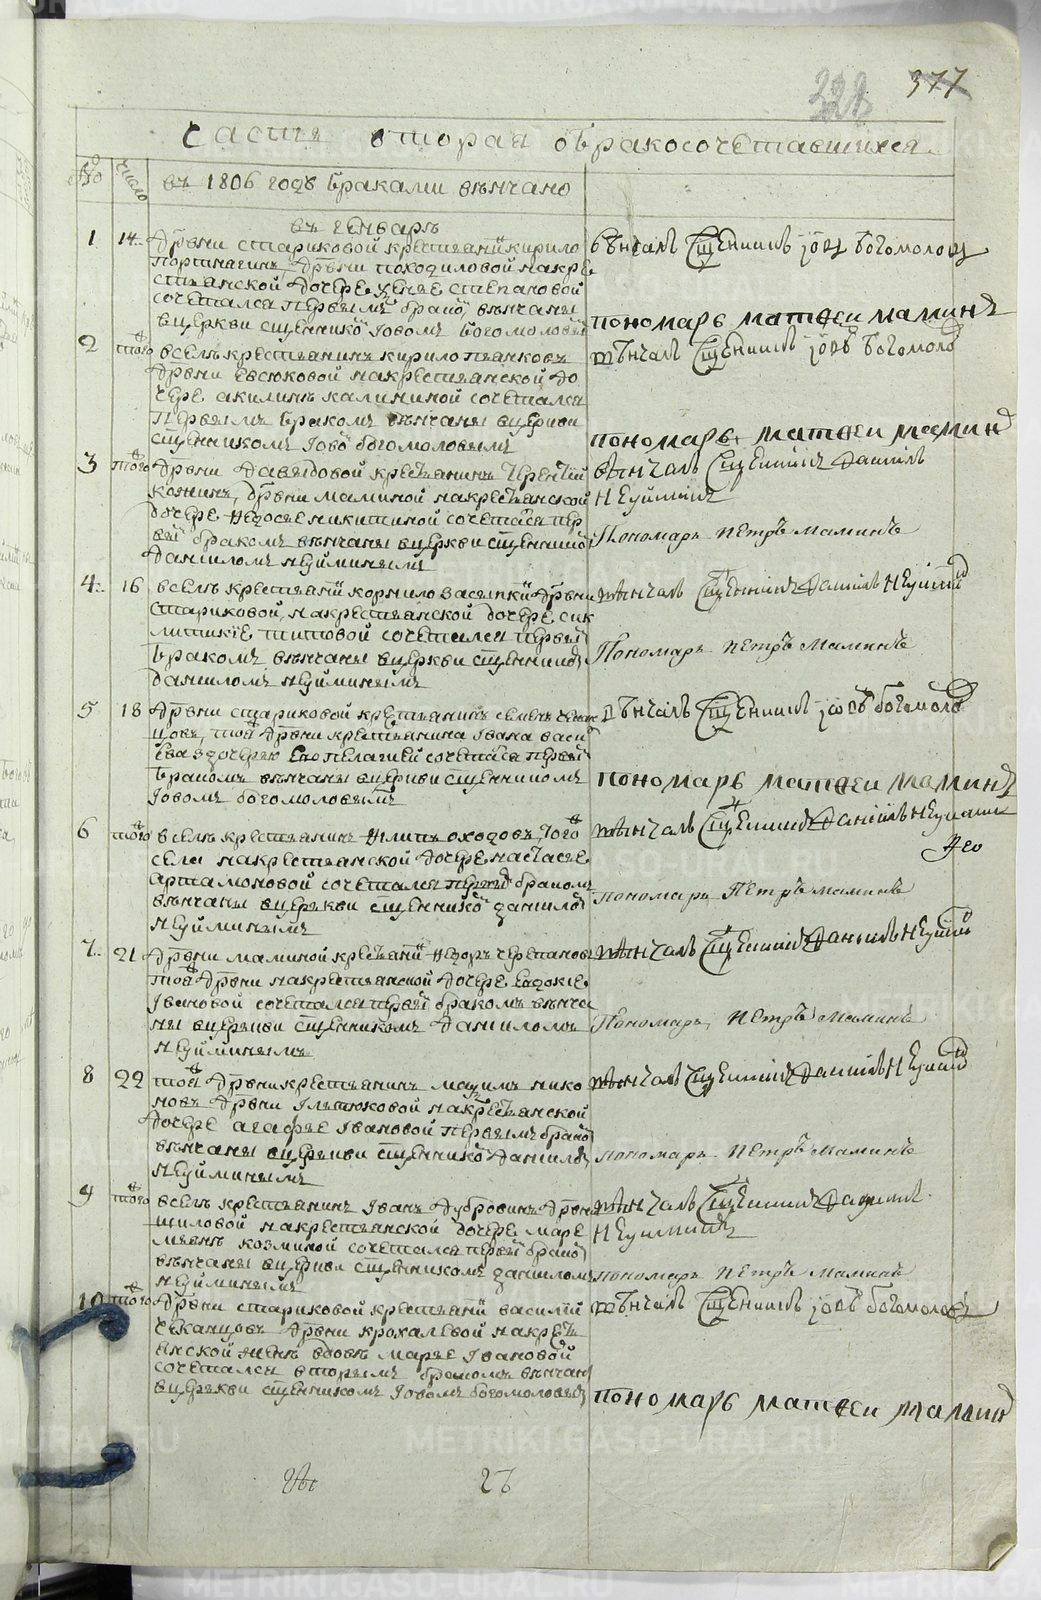 377
328
Часть вторая о бракосочетавшихся
№ число въ 1806 годѣ браками вѣнчано
въ генварѣ
1 14 дрвни стариковой крестьянинъ кирило
дрвни походиловой на кре
стьянской дочере ксенье степановой
сочетался первымъ бракомъ, вѣнчаны
в церкви сщенникомъ Іовомъ Богомоловымъ
Вѣнчалъ Сщенникъ Іовъ Богомоловъ
пономарь матвеи маминъ
2 того вселѣ крестьянинъ кирило пьянковъ
дрвни евсюковой на крестьянской до
чере акилинѣ калининой сочетался
первымъ бракомъ вѣнчаны в церкви
сщенникомъ Іовомъ богомоловымъ
вѣнчалъ Сщенникъ Іовъ Богомоловъ
пономарь матвеи маминъ
3 того дрвни давыдовой крестьянинъ
кожинъ, дрвни маминой на крестьянской
дочере федосье никитиной сочетался пер
вымъ бракомъ вѣнчаны в церкви сщенникомъ
даниломъ неуйминымъ
вѣнчалъ Сщенникъ Даніилъ
Неуйминъ
Пономарь Петръ Маминъ
4 16 вселѣ крестьянинъ корнило засыпкинъ дрвни
стариковой, на крестьянской дочере сик
литикіе титовой сочетался первымъ
бракомъ вѣнчаны в церкви сщенникомъ
даниломъ неуйминымъ
вѣнчалъ Сщенникъ Даніилъ Неуйминъ
Пономарь Петръ Маминъ
5 18 дрвни стариковой крестьянинъ семенъ чекан
цовъ, той дрвни крестьянина Ивана васи
ева з дочерью Ево пелагией сочетался первымъ
бракомъ вѣнчаны в церкви сщенникомъ
Іовомъ богомоловымъ
Вѣнчалъ Сщенникъ Іовъ богомоловъ
пономарь матвеи маминъ
6 того вселѣ крестьянинъ того
села на крестьянской дочере настасье
артамоновой сочетался первымъ бракомъ
вѣнчаны в церькви сщенникомъ даниломъ
неуйминымъ
вѣнчалъ Сщенникъ Даніилъ Неуйминъ
пономарь Петръ маминъ
7 21 дрвни маминой крестьянинъ федоръ черепановъ
той дрвни на крестьянской дочере евдокие
Івановой сочетался первымъ бракомъ вѣнча
ны в церькви сщенникомъ даниломъ
неуйминымъ
вѣнчалъ Сщенникъ Даніилъ Неуйминъ
Пономарь Петръ Маминъ
8 22 той дрвни крестьянинъ максимъ нико
новъ дрвни на крестьянской
дочере агафье Івановой первымъ бракомъ
вѣнчаны в церькви сщенникомъ даниломъ
неуйминымъ
вѣнчалъ Сщенникъ Даніилъ Неуйминъ
пономарь Петръ Маминъ
9 того вселѣ крестьянинъ Іванъ дубровинъ дрвни
шиловой на крестьянской дочере маре
мьянѣ козминой сочетался первымъ бракомъ
вѣнчаны в церкви сщенникомъ даниломъ
неуйминымъ
вѣнчалъ Сщенникъ Даніилъ
Неуйминъ
пономарь Петръ Маминъ
10 того дрвни стариковой крестьянинъ василій
чеканцовъ дрвни крохалевой на кресть
янской женѣ вдовѣ марье Івановой
сочетался вторымъ бракомъ вѣнчаны
в церькви сщенникомъ Іовомъ богомоловымъ
вѣнчалъ Сщенникъ Іовъ богомоловъ
пономарь матвеи маминъ
METRIKI.GASO-URAL.RU